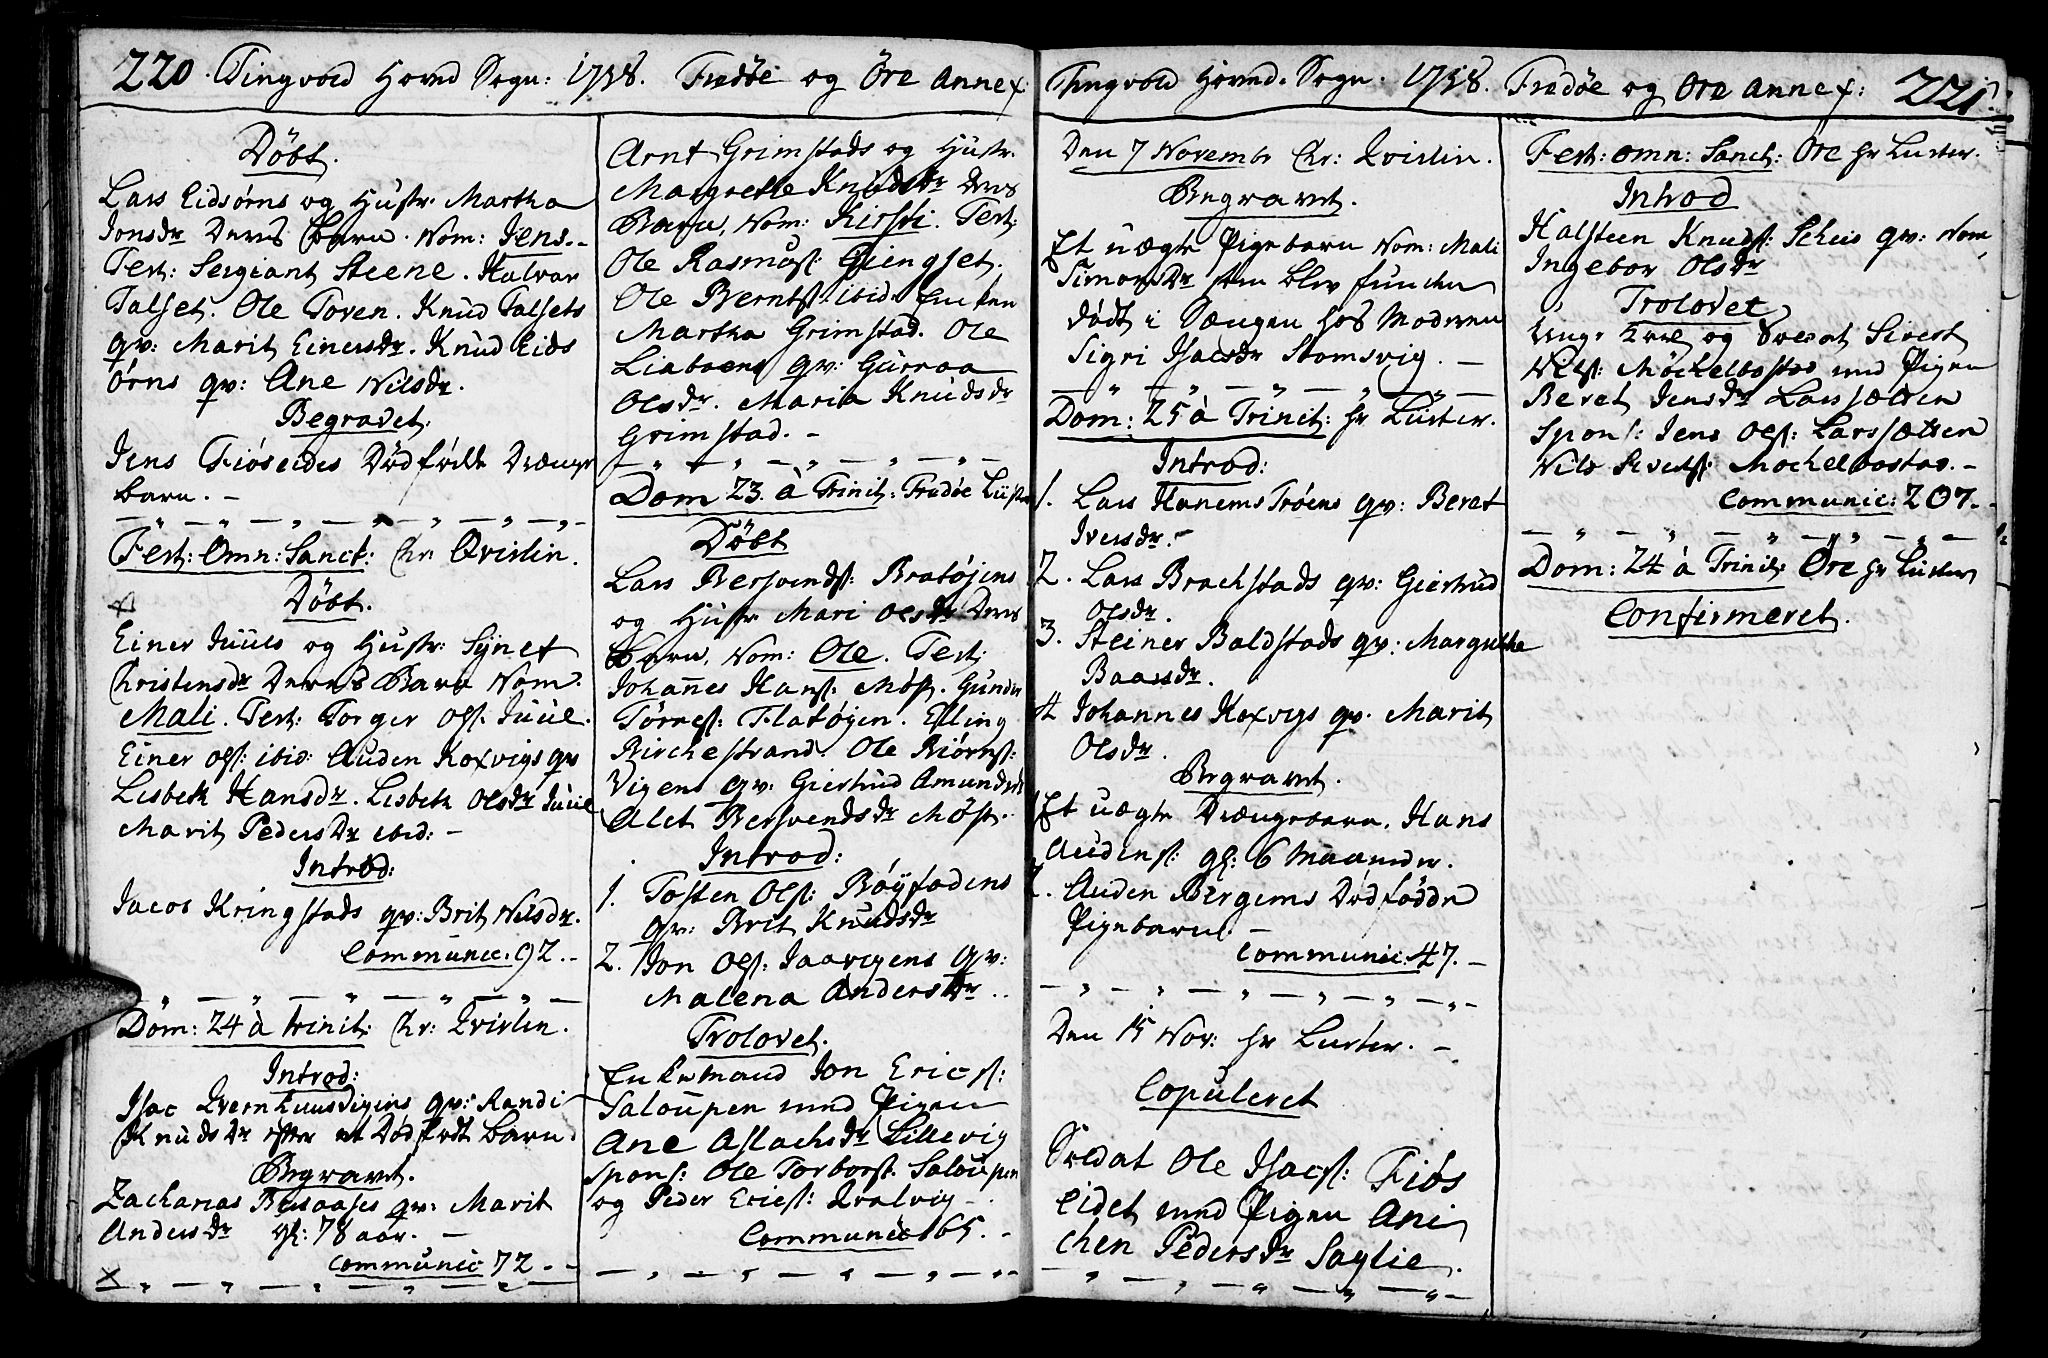 220. Tingvold Hoved Sogn: 1758. Fredøe og Öre Annex:
Döbt.
Lars Eidsørns og Hustr. Martha
Jonsdr Deres Barn. Nom: Jens.-
Test: Sergiant Steene. Halvar
Talset. Ole Toven. Knud Talsets
qv: Marit Einersdr. Knud Eids
örns qv: Ane Nilsdr.
Begravet.
Jens Fiöseides Dödfödde Drænge
barn. -
Fest: Omn: Sanct: Hr Qvislin.
Döbt.
Einer Juuls og Hustr: Synet
Christensdr Deres Barn Nom.
Mali. Test: Torger Ols: Juul.
Einer Ols: ibid: Auden Koxvigs qv
Lisbeth Hansdr. Lisbeth Olsdr Juul
Marit Peders Dr ibid: -
Introd:
Jacob Kringstads qv: Brit Nilsdr.
Communic: 92. -
Dom: 24 à trinit: Hr: Qvislin.
Introd:
Isac Qvernhuusvigens qv: Randi
Knuds Dr efter et Död født barn.
Begravet.
Zacharias qv: Marit
Anders dr gl: 78 aar. -
Communic: 72 - -
Arnt Grimstads og Hustr.
Margrethe Knudsdr Deres
Barn, Nom: Kirsti. Test:
Ole Rasmus: Giengset.
Ole Bernts: ibid. Enken
Martha Grimstad. Ole
Liabøens qv: Gurroa
Olsdr. Maria Knudsdr
Grimstad. -
Dom 23 à Trinit: Fredöe Luster
Döbt
Lars Bersvends: Bratøjens
og Hustr Mari Olsdr Deres
Barn, Nom: Ole. Test:
Johannes Hans: Möst. Gunder
Törres: Flatöjen. Elling
Birchestrand. Ole Biörns:
Vigens qv: Giertrud Amundsdr
Alet Bersvendsdr Möst.
Introd:
1. Tosten Ols: Röytadens
qv: Brit Knudsdr
2. Jon Ols: Jaavigens qv:
Malena Andersdr.
Trolovet.
Enkemand Jon Erics:
Saloupen med Pigen
Ane Aslachsdr Lillevig
Spons: Ole Torbers: Saloupen
og Peder Erics: Qvalvig -
Communic 165. -
Tingvold Hoved. Sogn. 1758. Fredöe og Ore Annex: 221.
Den 7 Novembr Hr: Qvislin.
Begravet.
Et uægte Pigebarn Nom: Mali
Simonsdr som blev funden
dödt i Sængen hos Moderen
Sigri Isacsdr Stomsvig. -
Dom: 25 à Trinit: Hr Luster.
Introd:
1. Lars Hanems Trøens qv: Beret
Iversdr. -
2. Lars Brachstads qv: Giertrud
Olsdr.
3. Steiner Baldstads qv: Margrethe
Baarsdr.
4 Johannes Koxvigs qv. Marit
Olsdr.
Begravet.
Et uægte Drængebarn, Hans
Audens: gl: 6 Maaneder.
2. Auden Bergems Död födde
Pigebarn. -
Communic: 47. -
Den 15 Nov: Hr Luster. -
Copuleret
Soldat Ole Isacs: Fiös
eidet med Pigen Ani
chen Pedersdr Saglie.
Fest: Omn: Sanct: Öre Hr Luster.
Introd
Halsteen Knuds: Scheis qv: Nom
Ingebor Olsdr
Trolovet
Unge Karl og Sivert
Nils: Möchelbostad med Pigen
Beret Jensdr Larssætren
Spons: Jens Ols: Larssætren
Nils Siverts: Mochelbostad. -
Communic: 207. -
Dom: 24 à Trinit: Öre Hr Luster
Confirmeret.